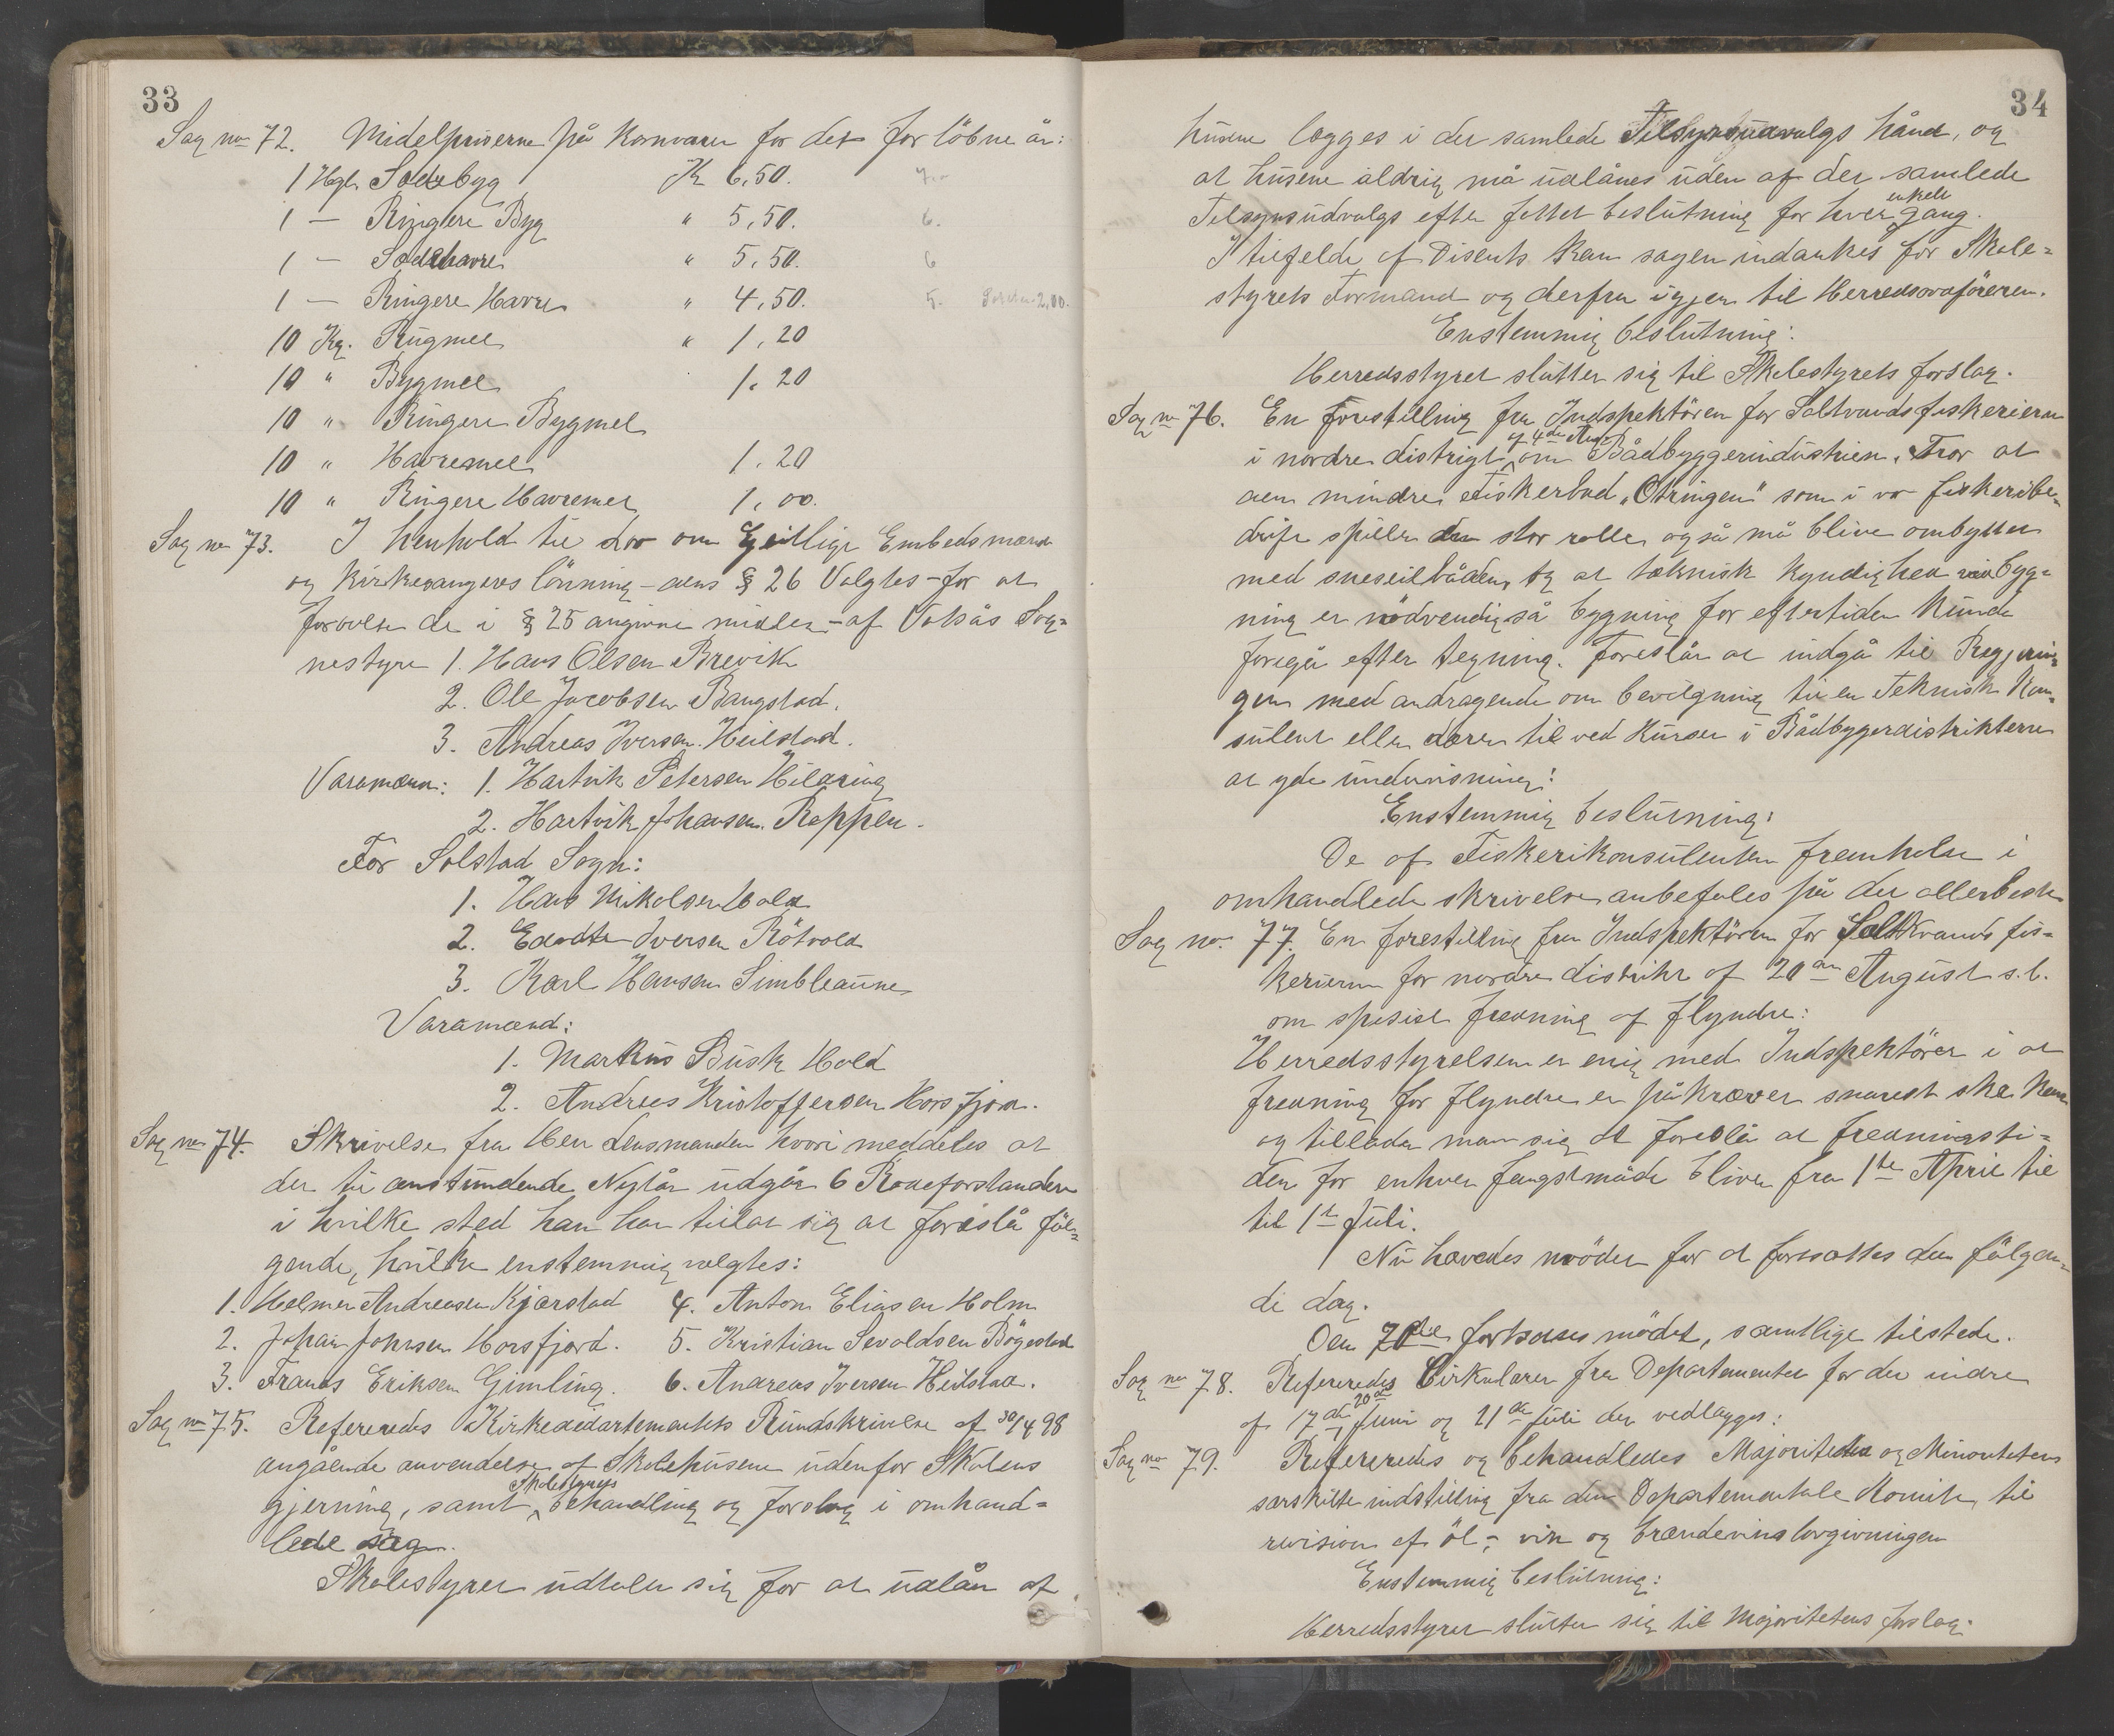 33
Sag no 72. Midelpriserne på Kornvarer for det forløbne år:
1 Hgl. Sædebyg Kr 6,50. 7.00
1 — Ringere Byg " 5,50. 6.
1 — Sædehavre " 5,50. 6
1 — Ringere Havre " 4,50. 5. 2,00.
10 Kg. Rugmel " 1,20
10 " Bygmel 1,20
10 " Ringere Bygmel
10 " Havremel 1,20
10 " Ringere Havremel 1,00.
Sag no 73. I henhold til Lov om Geistlige Embedsmænd
og Kirkesangeres lönning – dens § 26 Valgtes – for at
forvalte de i § 25 angivne midler – af Velfjords Sog=
nestyre 1. Hans Olsen Brevik
2. Ole Jacobsen Bangstad.
3. Andreas Iversen Heilstad.
Varamænd: 1. Hartvik Petersen Hilaring
2. Hartvik Johansen Reppen.
For Solstad Sogn:
1. Hans Nikolsen Hold
2. Iversen Rötvold
3. Karl Hansen Simbleaune
Varamænd:
1. Markus Busk Hold
2. Andreas Kristoffersen Horsfjord.
Sag no 74. Skrivelse fra Herr Lensmanden hvori meddeles at
der til anstundende Nytår udgår 6 Rodeforstandere
i hvilke sted han har tillat sig at foreslå föl=
gende, hvilke enstemmig valgtes:
1. Helmer Andreasen Kjærstad 4. Anton Eliasen Holm
2. Johan Johnsen Horsfjord. 5. Kristian Sevaldsen Bögestad
3. Frants Eriksen Gimling. 6. Andreas Iversen Heilstad.
Sag no 75. Refereredes Kirkedepartementets Rundskrivelse af 30/4 98
angående anvendelse af Skolehusene udenfor Skolens
gjerning, samt Skolestyrets behandling og forslag i omhand=
lede sag.
Skolestyret udtaler sig for at udlån af
34
husene lægges i det samlede Tilsynsudvalgs hånd, og
at husene aldrig må udlånes uden af det samlede
Tilsynsudvalgs efter fattet beslutning for hver enkelt gang.
I tilfelde af Disents kan sagen indankes for Skole=
styrets Formand og derfra igjen til Herredsordföreren.
Enstemmig beslutning:
Herredsstyret slutter sig til Skolestyrets forslag.
Sag no 76. En forestilling fra Indspektören for Saltvandsfiskerierne
i nordre distrigt af 4de Aug. om Bådbyggerindustrien. Tror at
den mindre Fiskerbåd „Otringen" som i vor fiskeribe=
drift spiller en stor rolle, også må blive ombyttet
med sneseilbåden, og at teknisk kyndighed ved byg=
ning er nödvendig så bygning for eftertiden kunde
foregå efter tegning. Foreslår at indgå til Regjerin=
gen med andragende om bevilgning til en Teknisk Kon=
sulent eller lærer til ved Kurser i Bådbyggerdistrikterne
at yde undervisning:
Enstemmig beslutning:
De af Fiskerikonsulenten fremholdte i
omhandlede skrivelse anbefales på det allerbeste
Sag no. 77. En forestilling fra Indspektören for Saltvands fis=
kerierne for nordre distrikt af 20de August s. l.
om spesiel fredning af flyndre:
Herredsstyrelsen er enig med Indspektören i at
fredning for flyndre er påkrævet snarest ske kan
og tillader man sig at foreslå at fredningsti=
den for enhver fangstmåde bliver fra 1te April til
til 1te Juli.
Nu hævedes mödet for at fortsættes den fölgen=
de dag.
Den 7de fortsattes mödet, samtlige tilstede.
Sag no 78. Refereredes Cirkulærer fra Departementet for det indre
af 17de, 20de Juni og 21de Juli der vedlægges:
Sag no 79. Refereredes og behandledes Majoritetens og Minoritetens
særskilte indstilling fra den Departementale Komite til
revision af öl-, vin og brændevinslovgivningen
Enstemmig beslutning:
Herredsstyret slutter sig til Majoritetens forslag.